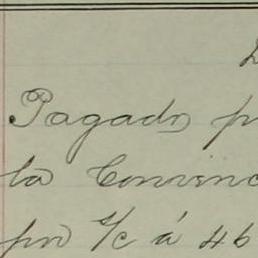 Pagado p
la Convenc
por s/c á 46